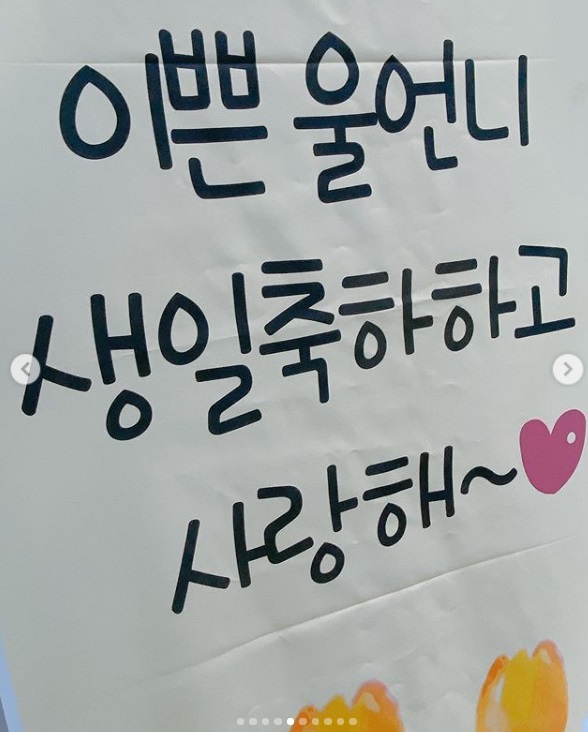 이쁜 울언니
생일축하하고
사랑해~